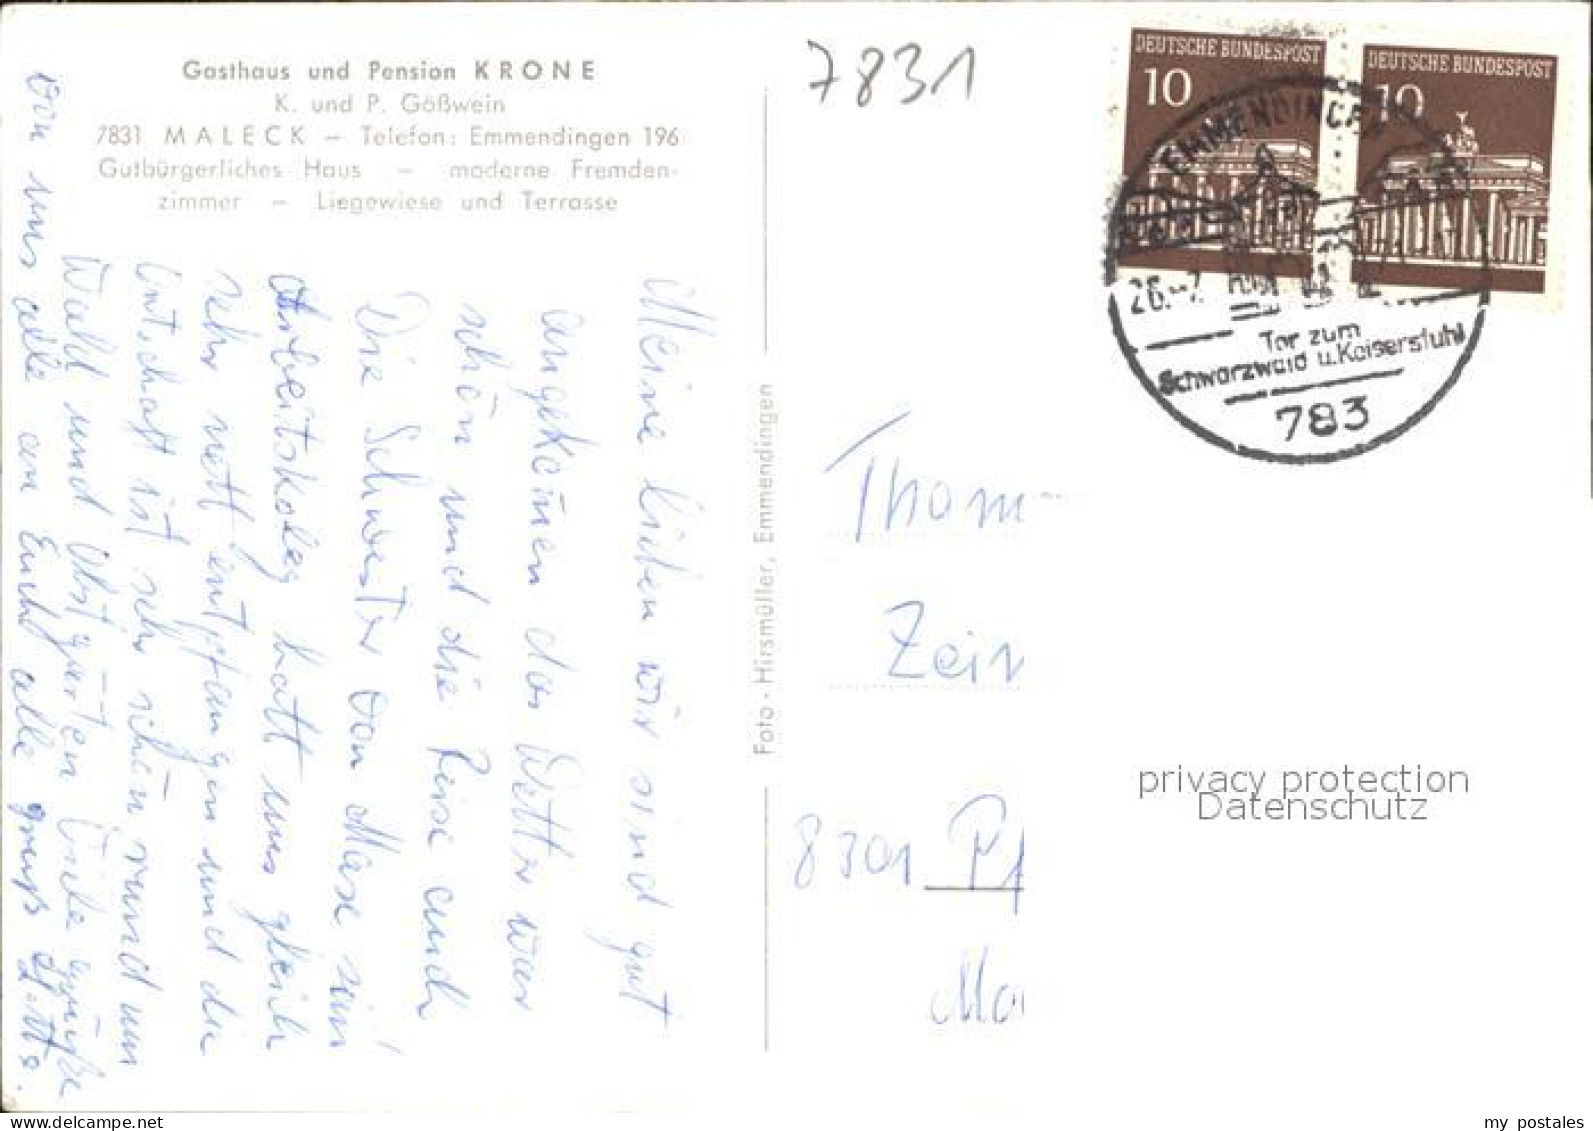 Gasthaus und Pension KRONE
K. und P. Gößwein
7831 MALECK – Telefon: Emmendingen 196
Gutbürgerliches Haus – moderne Fremden-
zimmer – Liegewiese und Terrasse
Meine lieben wir sind gut
angekom̄en das Wetter war
schön und die Reise auch
Die Schwester von Maxe sein
Arbeitskoleg hatt uns gleich
sehr nett entpfangen und die
Lntschaft ist sehr schön rund um
Wald und Obstgärten Viele Grüße
von uns alle an Euch alle
Foto - Hirsmüller, Emmendingen
7831
DEUTSCHE BUNDESPOST
10
DEUTSCHE BUNDESPOST
10
EMMENDINGEN
26.-7.
Tor zum
Schwarzwald u. Kaiserstuhl
783
Thom
Zein
8301 Pf
Ma
privacy protection
Datenschutz
my postales